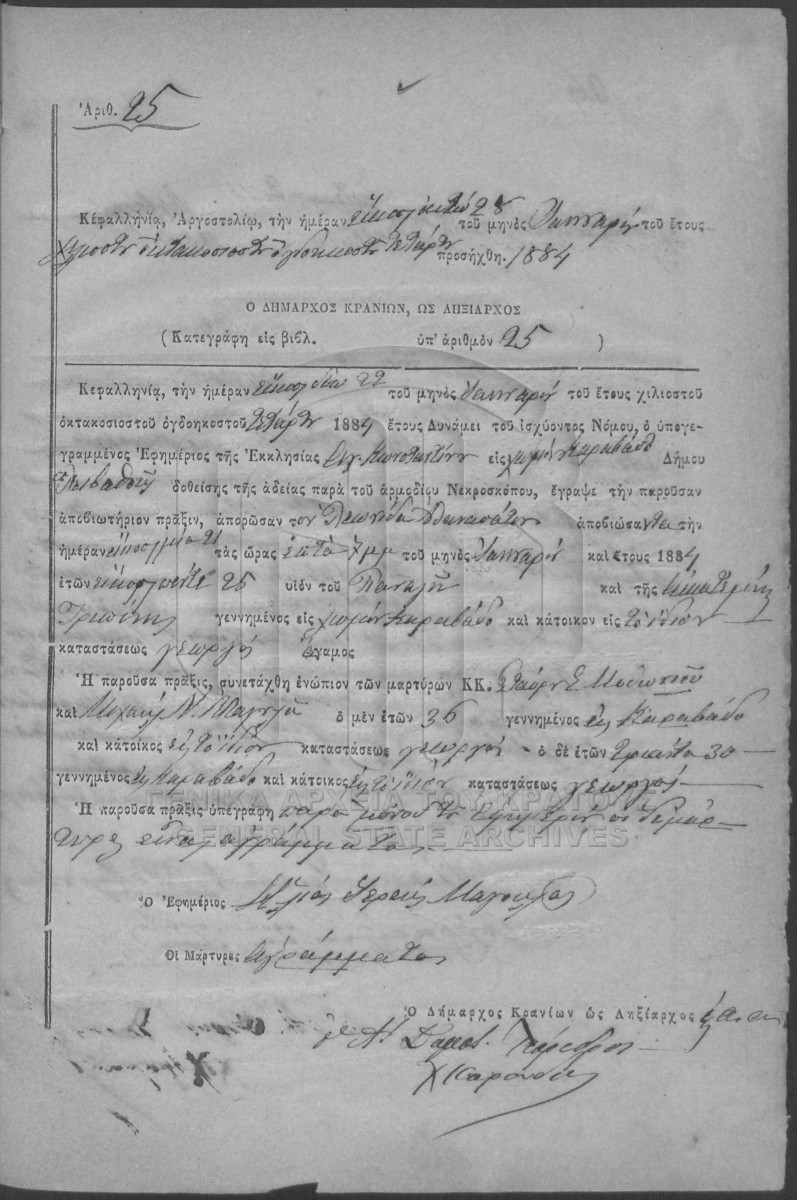 Ἀριθ. 25
Κεφαλληνία, Ἀργοστολίῳ, τὴν ἡμέραν εἴκοσι ὀκτὼ 28 τοῦ μηνὸς Ἰανουαρίου τοῦ ἔτους
χιλιοστοῦ ὀκτακοσιοστοῦ ὀγδοηκοστοῦ τετάρτου προσήχθη. 1884
Ο ΔΗΜΑΡΧΟΣ ΚΡΑΝΙΩΝ, ΩΣ ΛΗΞΙΑΡΧΟΣ
(Κατεγράφη εἰς βιβλ. ὑπ' ἀριθμὸν 25 )
Κεφαλληνία, τὴν ἡμέραν εἴκοσι δύο 22 τοῦ μηνὸς Ἰανουαρίου τοῦ ἔτους χιλιοστοῦ
ὀκτακοσιοστοῦ ὀγδοηκοστοῦ τετάρτου 1884 ἔτους Δυνάμει τοῦ ἰσχύοντος Νόμου, ὁ ὑπογε-
γραμμένος Ἐφημέριος τῆς Ἐκκλησίας Ἁγ. Κωνσταντίνου εἰς χωρίον Καραβάδο Δήμου
Λειβαθοῦς δοθείσης τῆς ἀδείας παρὰ τοῦ ἁρμοδίου Νεκροσκόπου, ἔγραψε τὴν παροῦσαν
ἀποβιωτήριον πρᾶξιν, ἀπορῶσαν τον Λεωνίδα ἀποβιώσαντα τὴν
ἡμέραν εἴκοσι μία 21 τὰς ὥρας ἑπτὰ 7 μμ τοῦ μηνὸς Ἰανουαρίου καὶ ἔτους 1884
ἐτῶν εἴκοσι πέντε 25 υἱὸν τοῦ Παναγῆ καὶ τῆς Αἰκατερίνης
γεννημένος εἰς χωρίον Καραβάδο καὶ κάτοικον εἰς τὸ ἴδιον
καταστάσεως γεωργὸς ἄγαμος
Ἡ παροῦσα πρᾶξις, συνετάχθη ἐνώπιον τῶν μαρτύρων ΚΚ. Σταύρου Σ.
καὶ Μιχαὴλ Ν. ὁ μὲν ἐτῶν 36 γεννημένος εἰς Καραβάδο
καὶ κάτοικος εἰς τὸ ἴδιον καταστάσεως γεωργὸς ὁ δὲ ἐτῶν τριάντα 30
γεννημένος εἰς Καραβάδο καὶ κάτοικος εἰς τὸ ἴδιον καταστάσεως γεωργὸς
Ἡ παροῦσα πρᾶξις ὑπεγράφη παρὰ μόνου τοῦ Ἐφημερίου οἱ δὲ μάρ-
τυρες εἶναι ἀγράμματοι
Ὁ Ἐφημέριος Ἱερεὺς
Οἱ Μάρτυρες ἀγράμματοι
Ὁ Δήμαρχος Κρανίων ὡς Ληξίαρχος
Πάρεδρος
ΓΕΝΙΚΑ ΑΡΧΕΙΑ ΤΟΥ ΚΡΑΤΟΥΣ
GENERAL STATE ARCHIVES